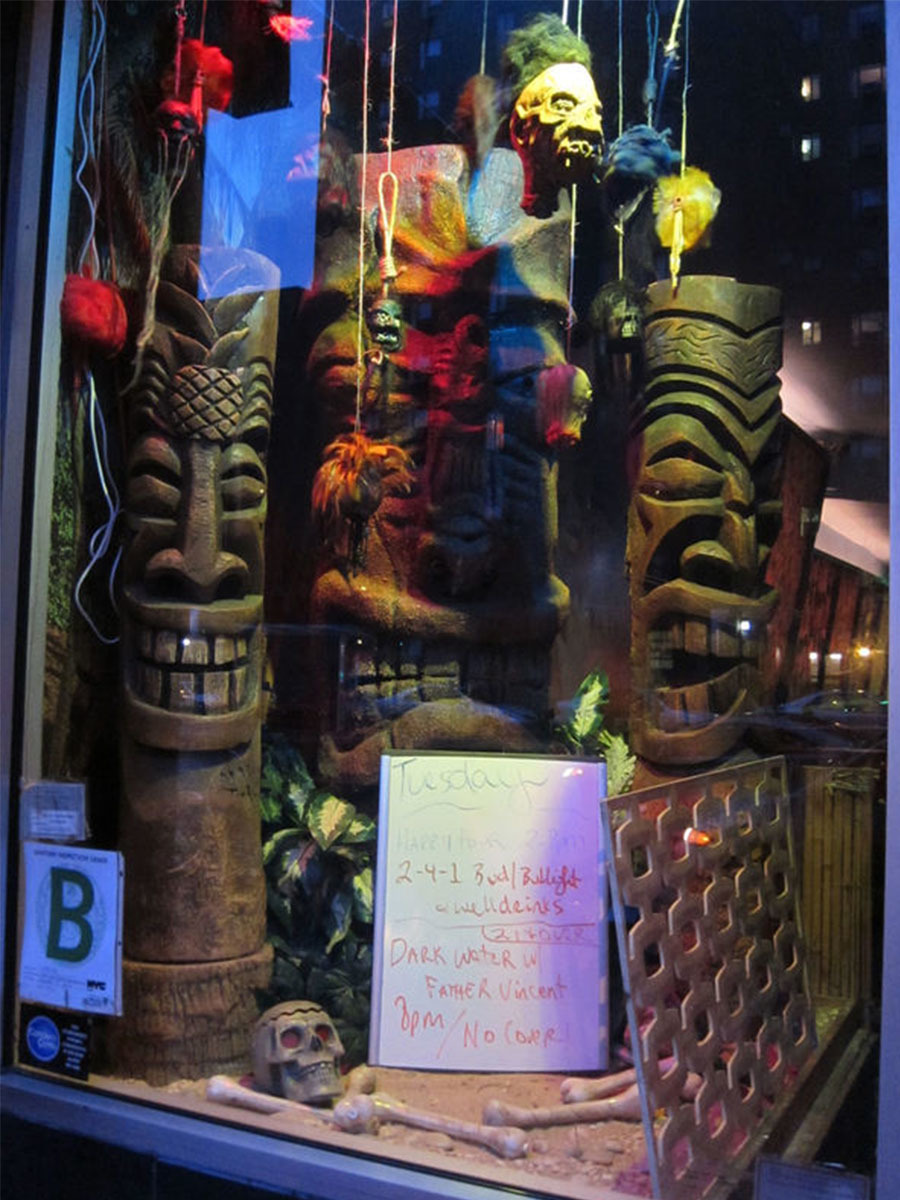 Tuesday
HAPPY HOUR 2-8pm
2-4-1 Bud/Budlight
welldrinks
21+OVER
DARK WATER w/
FATHER Vincent
8pm / No Cover!
SANITARY INSPECTION GRADE
B
NYC